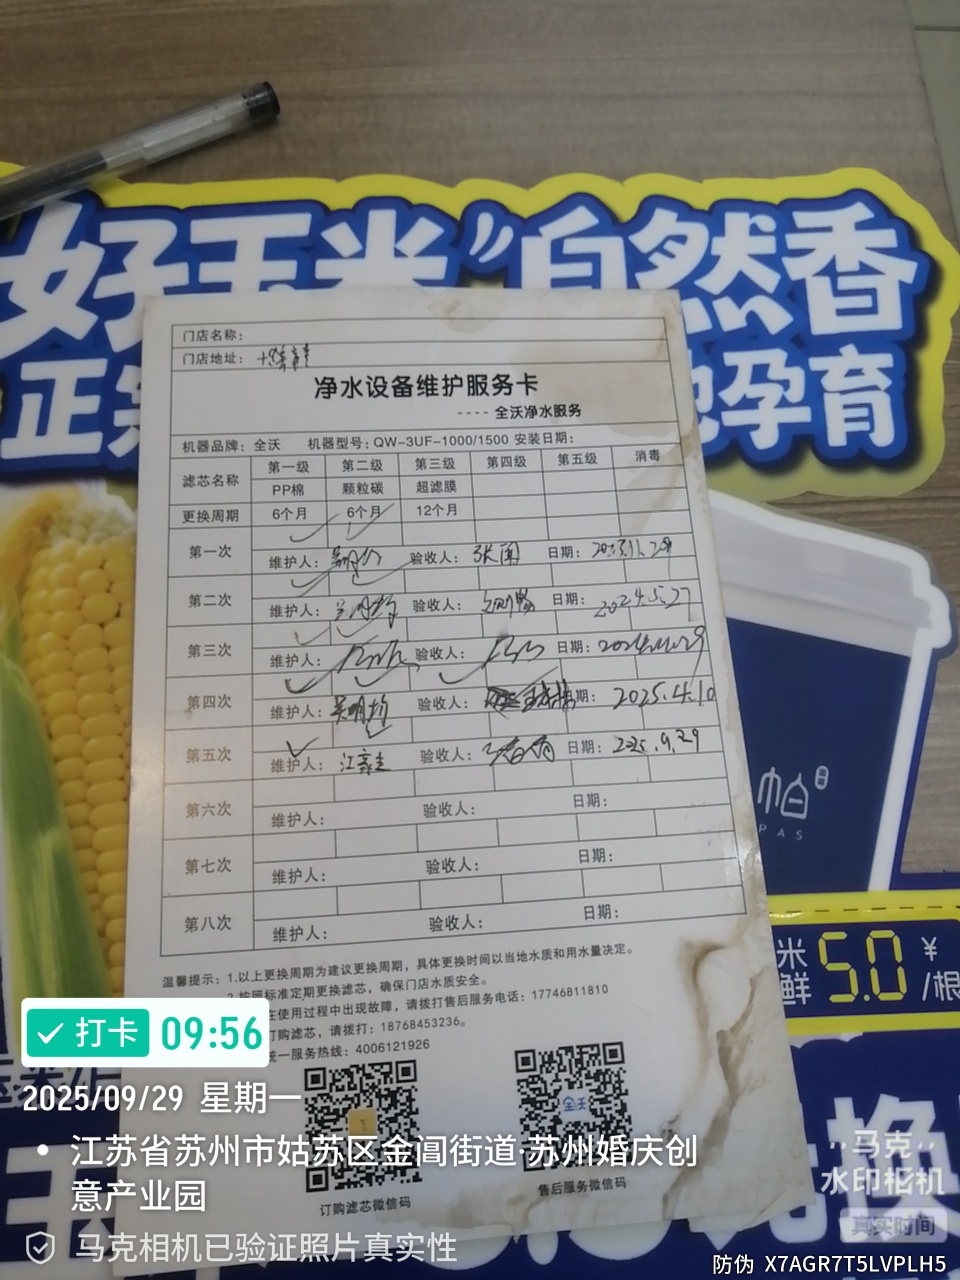 好玉米"自然香
正宗
地孕育
门店名称：
门店地址：
净水设备维护服务卡
---- 全沃净水服务
机器品牌：全沃 机器型号：QW-3UF-1000/1500 安装日期：
滤芯名称 第一级 第二级 第三级 第四级 第五级 消毒
PP棉 颗粒碳 超滤膜
更换周期 6个月 6个月 12个月
第一次
维护人： 验收人： 日期：2023.11.29
第二次
维护人： 验收人： 日期：2024.5.27
第三次
维护人： 验收人： 日期：2024.11.29
第四次
维护人：吴明均 验收人： 期：2025.4.10
第五次
维护人： 验收人： 日期：2025.9.29
第六次
维护人： 验收人： 日期：
第七次
维护人： 验收人： 日期：
第八次
维护人： 验收人： 日期：
温馨提示：1.以上更换周期为建议更换周期，具体更换时间以当地水质和用水量决定。
2.按照标准定期更换滤芯，确保门店水质安全。
在使用过程中出现故障，请拨打售后服务电话：17746811810
订购滤芯，请拨打：18768453236。
统一服务热线：4006121926
全沃
订购滤芯微信码
售后服务微信码
帕
PAS
米
鲜 5.0 ¥/根
换
玉
打卡 09:56
2025/09/29 星期一
江苏省苏州市姑苏区金阊街道·苏州婚庆创
意产业园
马克相机已验证照片真实性
马克
水印相机
真实时间
防伪 X7AGR7T5LVPLH5